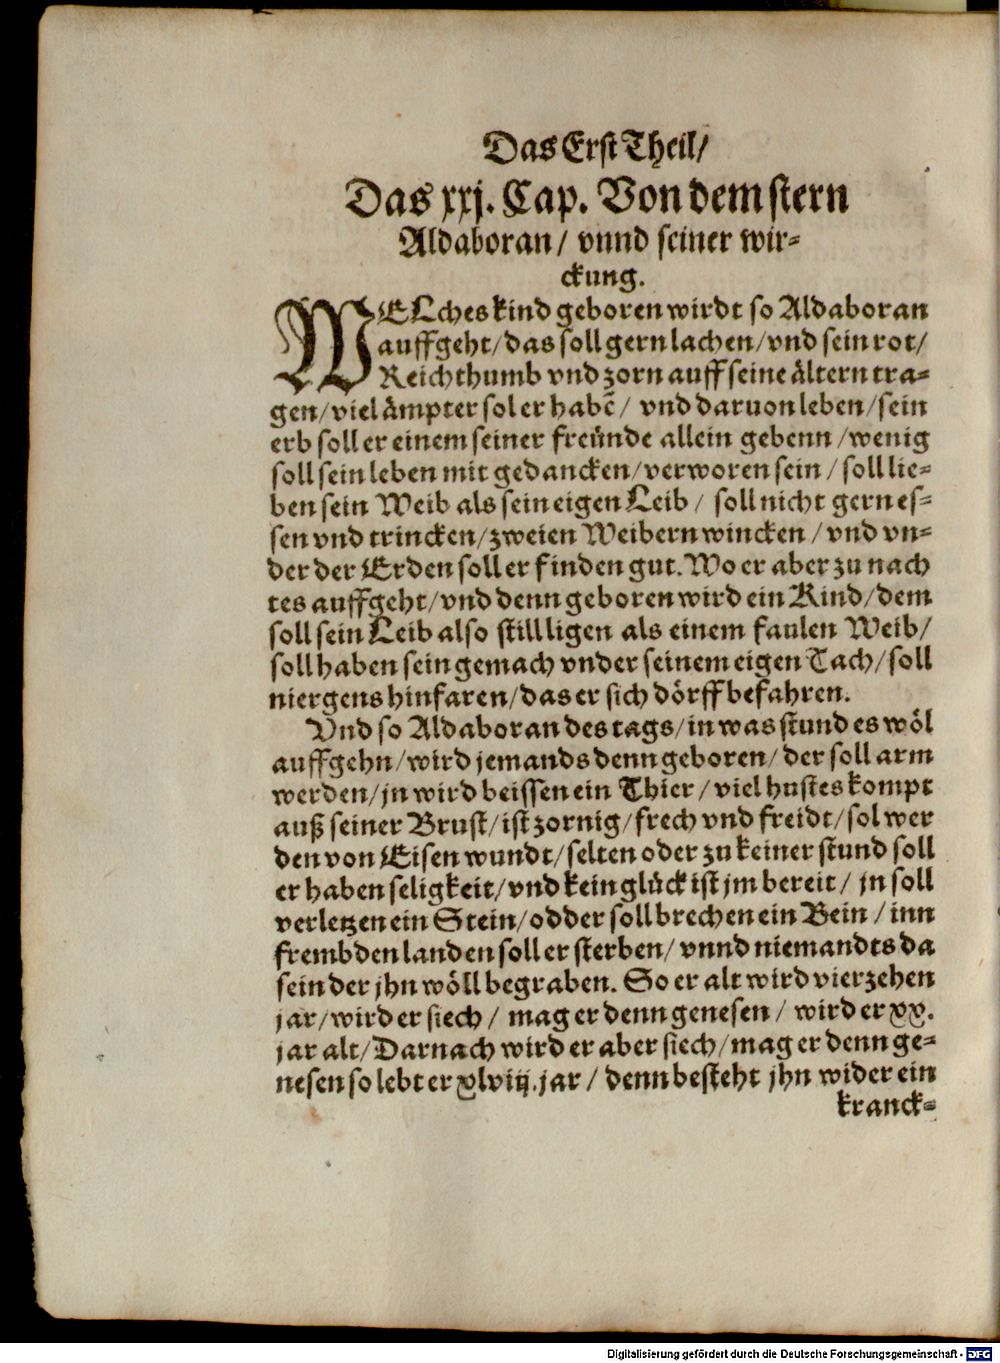 Das Erst Theil/
Das xxj. Cap. Von dem stern
Aldaboran/ vnnd seiner wir-
ckung.
WELches kind geboren wirdt so Aldaboran
auffgeht/ das soll gern lachen/ vnd sein rot/
Reichthumb vnd zorn auff seine ältern tra-
gen/ viel ämpter sol er habē/ vnd daruon leben/ sein
erb soll er einem seiner freünde allein gebenn/ wenig
soll sein leben mit gedancken/ verworen sein/ soll lie-
ben sein Weib als sein eigen Leib/ soll nicht gern es-
sen vnd trincken/ zweien Weibern wincken/ vnd vn-
der der Erden soll er finden gut. Wo er aber zu nach
tes auffgeht/ vnd denn geboren wird ein Kind/ dem
soll sein Leib also still ligen als einem faulen Weib/
soll haben sein gemach vnder seinem eigen Tach/ soll
niergens hinfaren/ das er sich dörff befahren.
Vnd so Aldaboran des tags/ in was stund es wöl
auffgehn/ wird jemands denn geboren/ der soll arm
werden/ jn wird beissen ein Thier/ viel hustes kompt
auß seiner Brust/ ist zornig/ frech vnd freidt/ sol wer
den von Eisen wundt/ selten oder zu keiner stund soll
er haben seligkeit/ vnd kein glück ist jm bereit/ jn soll
verletzen ein Stein/ odder soll brechen ein Bein/ inn
frembden landen soll er sterben/ vnnd niemandts da
sein der jhn wöll begraben. So er alt wird vierzehen
jar/ wird er siech/ mag er denn genesen/ wird er xx.
jar alt/ Darnach wird er aber siech/ mag er denn ge-
nesen so lebt er xlviij. jar/ denn besteht jhn wider ein
kranck-
Digitalisierung gefördert durch die Deutsche Forschungsgemeinschaft - DFG